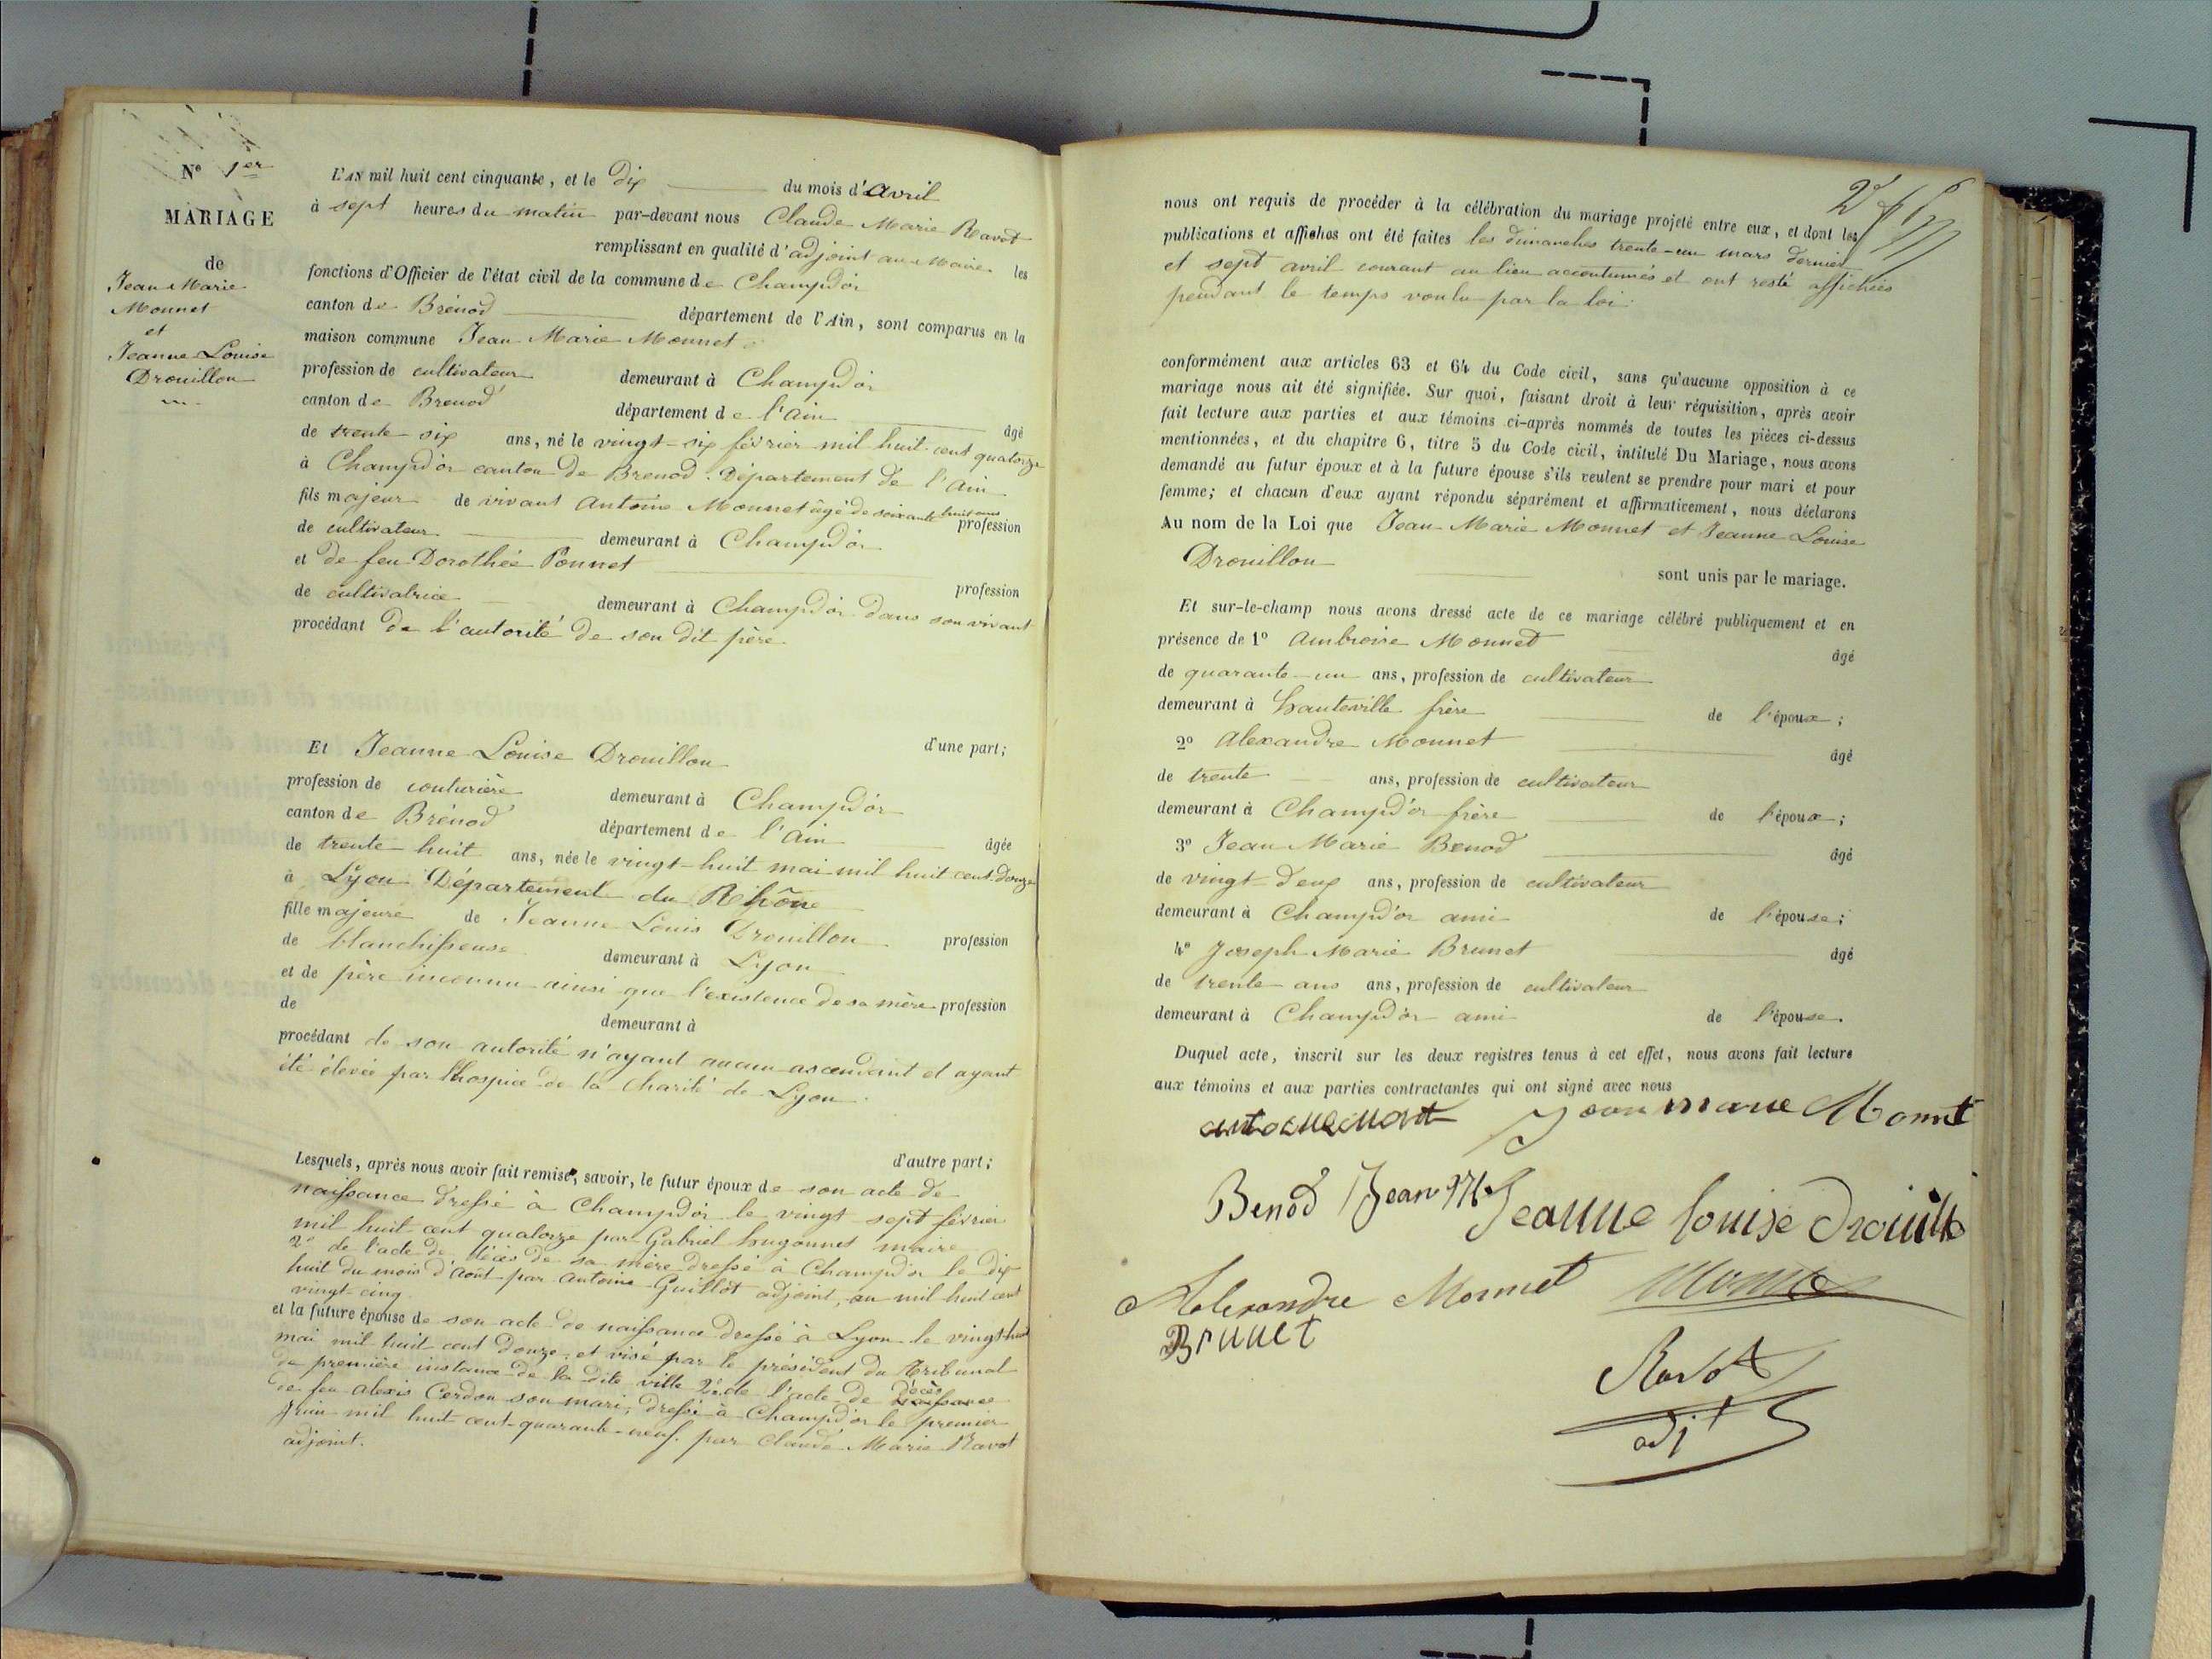 N° 1er
MARIAGE
de
Jean Marie
Monnet
et
Jeanne Louise
Drouillon
L'AN mil huit cent cinquante, et le Dix du mois d'avril
à sept heures du matin par-devant nous Claude Marie Ravot
remplissant en qualité d'adjoint au Maire les
fonctions d'Officier de l'état civil de la commune de Champdor
canton de Brénod département de l'Ain, sont comparus en la
maison commune Jean Marie Monnet
profession de cultivateur demeurant à Champdor
canton de Brenod département de l'ain âgé
de trente-six ans, né le vingt-six février mil huit cent quatorze
à Champdor canton de Brenod. Département de l'ain
fils majeur de vivant Antoine Monnet âgé de soixante huit ans profession
de cultivateur demeurant à Champdor
et de feu Dorothée Ponnet profession
de cultivatrice demeurant à Champdor dans son vivant
procédant de l'autorité de son dit père.
d'une part;
Et Jeanne Louise Drouillon
profession de couturière demeurant à Champdor
canton de Brénod département de l'ain âgée
de trente-huit ans, née le vingt-huit mai mil huit cent douze
à Lyon Département du Rhône
fille majeure de Jeanne Louis Drouillon profession
de blanchisseuse demeurant à Lyon
et de père inconnu ainsi que l'existence de sa mère profession
de demeurant à
procédant de son autorité n'ayant aucun ascendant et ayant
été élevée par l'hospice de la Charité de Lyon.
d'autre part;
Lesquels, après nous avoir fait remise, savoir, le futur époux de son acte de
naissance dressé à Champdor le vingt sept février
mil huit cent quatorze par Gabriel hugonnet maire
2° de l'acte de décès de sa mère dressé à Champdor le dix
huit du mois d'août par antoine Guillot adjoint, an mil huit cent
vingt-cinq.
et la future épouse de son acte de naissance dressé à Lyon le vingt-huit
mai mil huit cent douze, et visé par le président du tribunal
de première instance de la dite ville 2° de l'acte de naissance décès
de feu alexis Cerdon son mari, dressé à Champdor le premier
juin mil huit cent quarante-neuf. par Claude Marie Ravot
adjoint.
nous ont requis de procéder à la célébration du mariage projeté entre eux, et dont les
publications et affiches ont été faites les dimanches trente-un mars dernier
et sept avril courant au lieu accoutumés et ont resté affichées
pendant le temps voulu par la loi.
conformément aux articles 63 et 64 du Code civil, sans qu'aucune opposition à ce
mariage nous ait été signifiée. Sur quoi, faisant droit à leur réquisition, après avoir
fait lecture aux parties et aux témoins ci-après nommés de toutes les pièces ci-dessus
mentionnées, et du chapitre 6, titre 5 du Code civil, intitulé Du Mariage, nous avons
demandé au futur époux et à la future épouse s'ils veulent se prendre pour mari et pour
femme; et chacun d'eux ayant répondu séparément et affirmativement, nous déclarons
Au nom de la Loi que Jean Marie Monnet et Jeanne Louise
Drouillon sont unis par le mariage.
Et sur-le-champ nous avons dressé acte de ce mariage célébré publiquement et en
présence de 1° Ambroise Monnet âgé
de quarante-un ans, profession de cultivateur
demeurant à hauteville frère de l'époux;
2° Alexandre Monnet âgé
de trente ans, profession de cultivateur
demeurant à Champdor frère de l'époux;
3° Jean Marie Benod âgé
de vingt deux ans, profession de cultivateur
demeurant à Champdor ami de l'épouse;
4° Joseph Marie Brunet âgé
de trente ans ans, profession de cultivateur
demeurant à Champdor ami de l'épouse.
Duquel acte, inscrit sur les deux registres tenus à cet effet, nous avons fait lecture
aux témoins et aux parties contractantes qui ont signé avec nous
Jean marie Monnet
Benod Jean Mie Jeanne louise drouillo
Alexandre Monnet Monnet
Brunet
Ravot
adjt